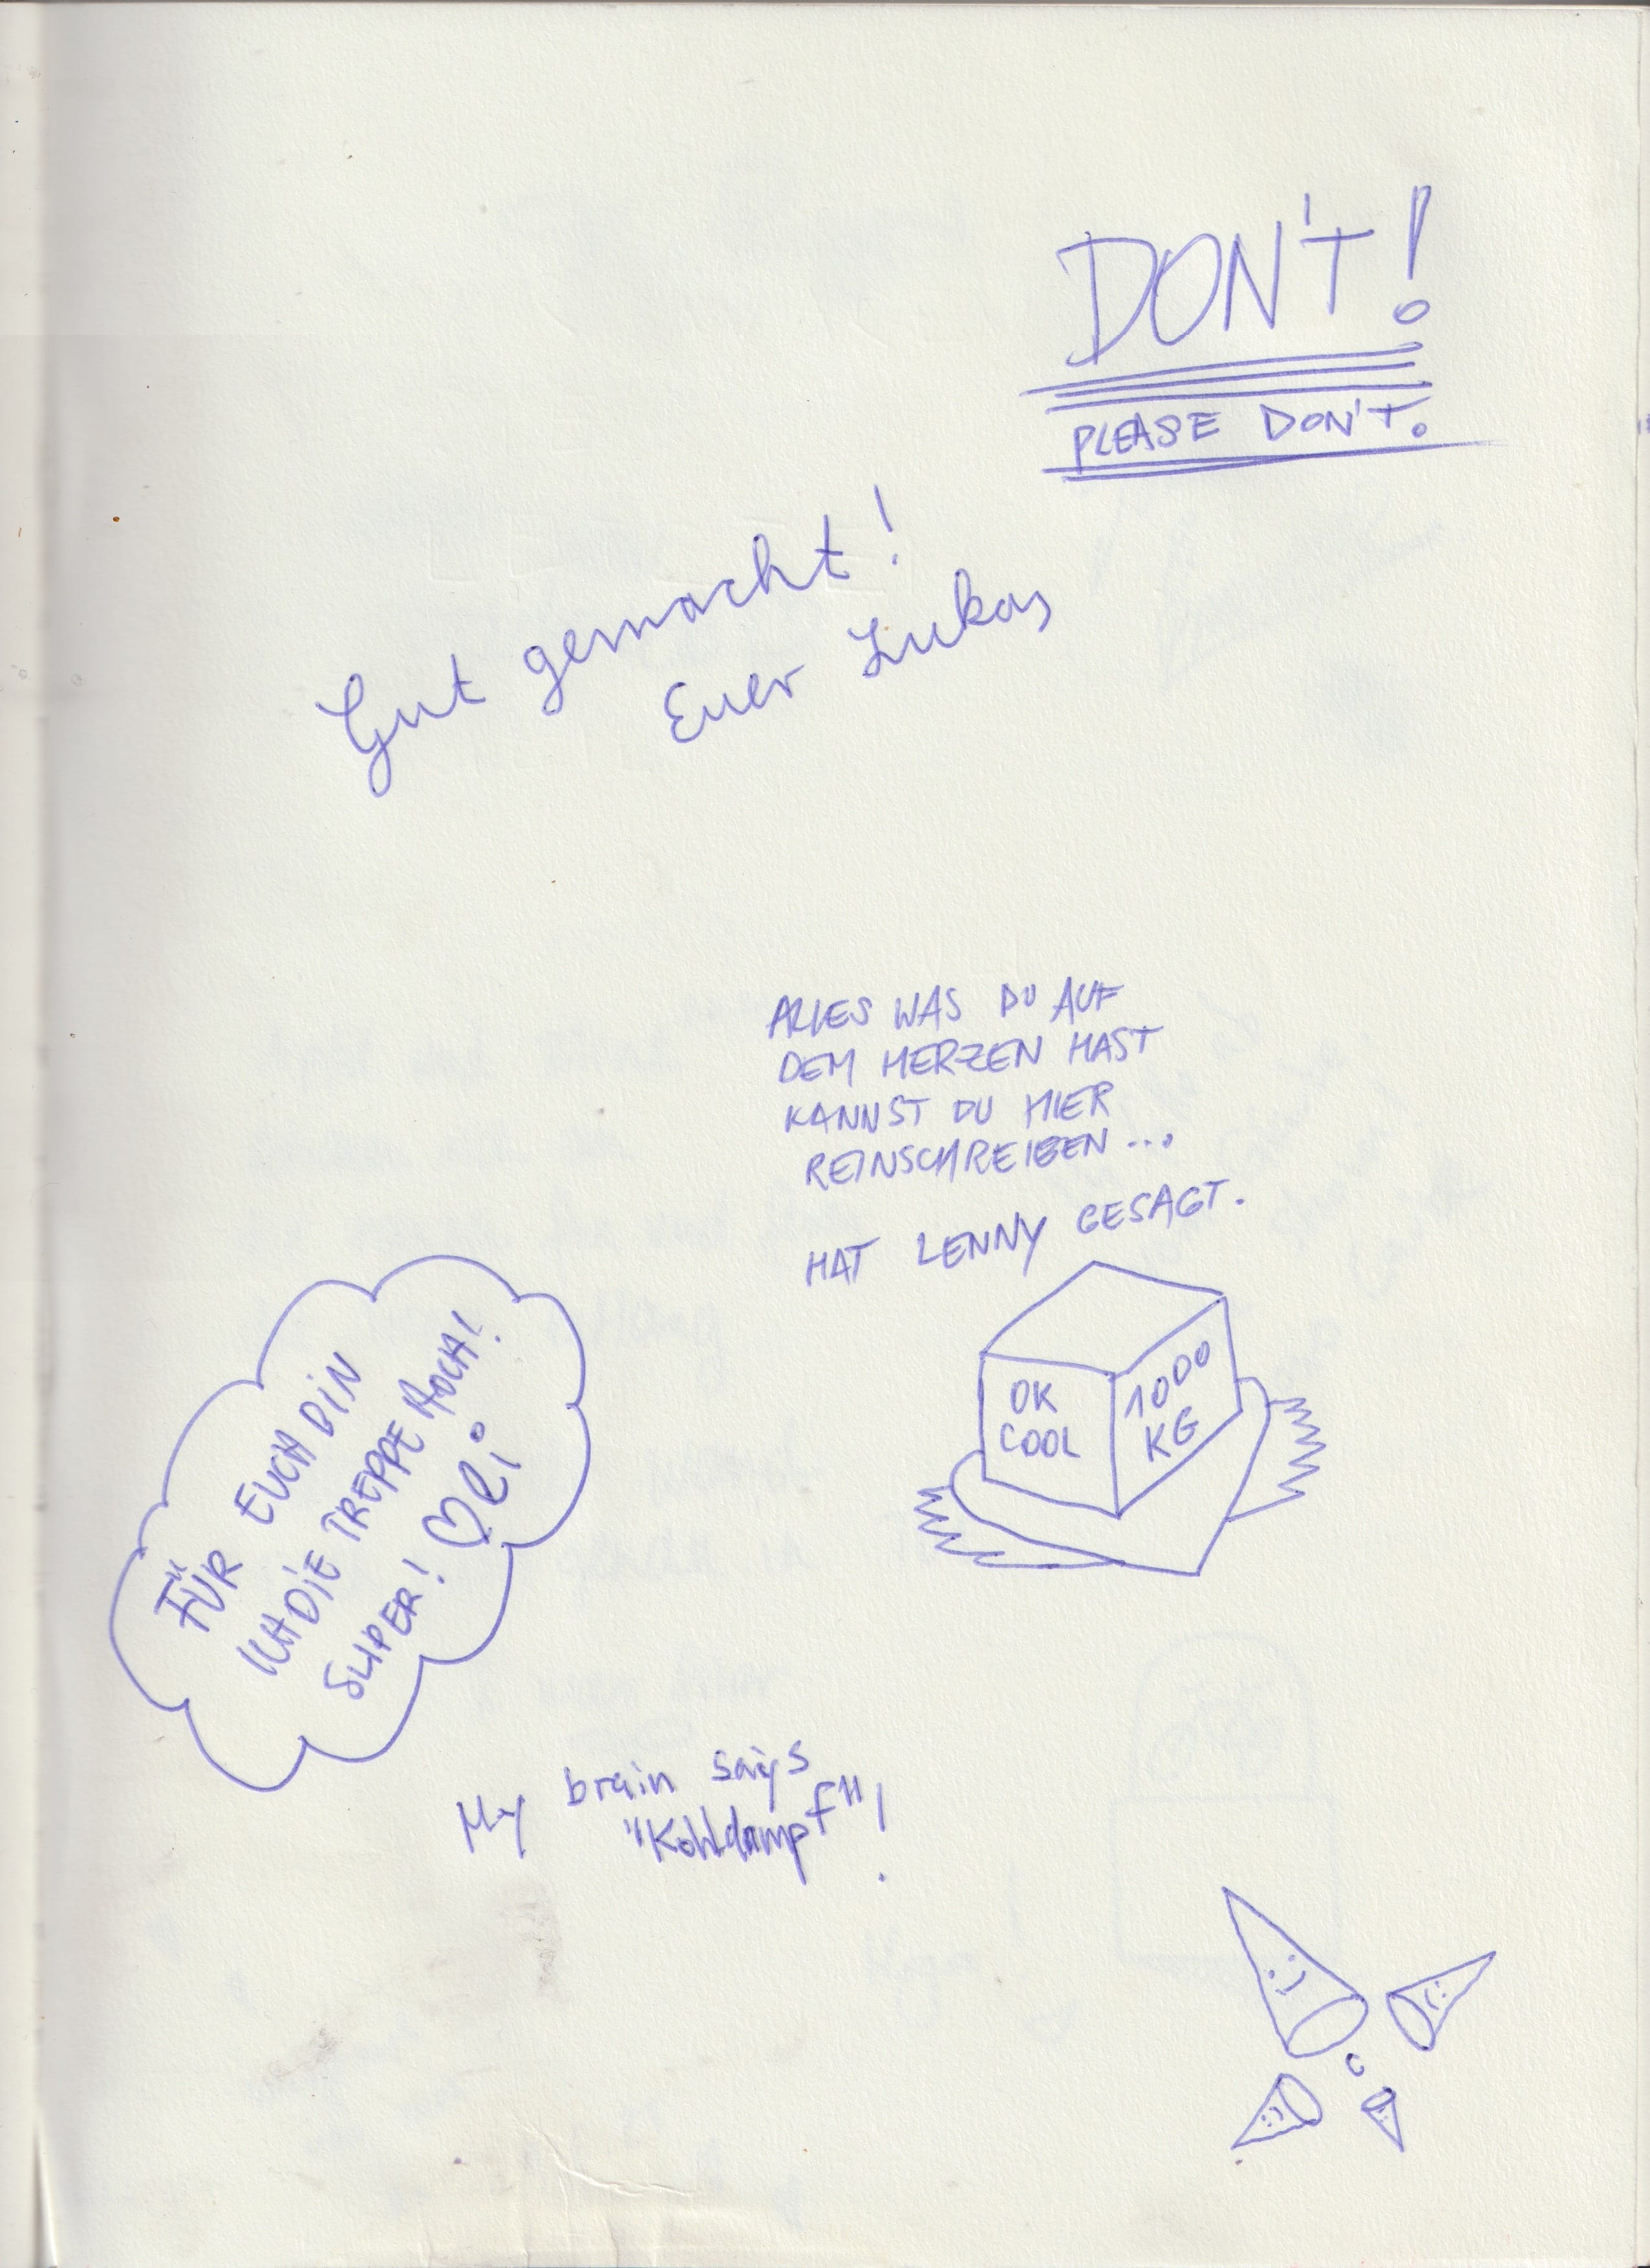 DON'T!
PLEASE DON'T.
Gut gemacht!
Euer Lukas
ALLES WAS DU AUF
DEM HERZEN HAST
KANNST DU HIER
REINSCHREIBEN...
HAT LENNY GESAGT.
OK
COOL
1000
KG
FÜR EUCH BIN
ICH DIE TREPPE HOCH!
SUPER! ♡ Oli
My brain says
"Kohldampf"!